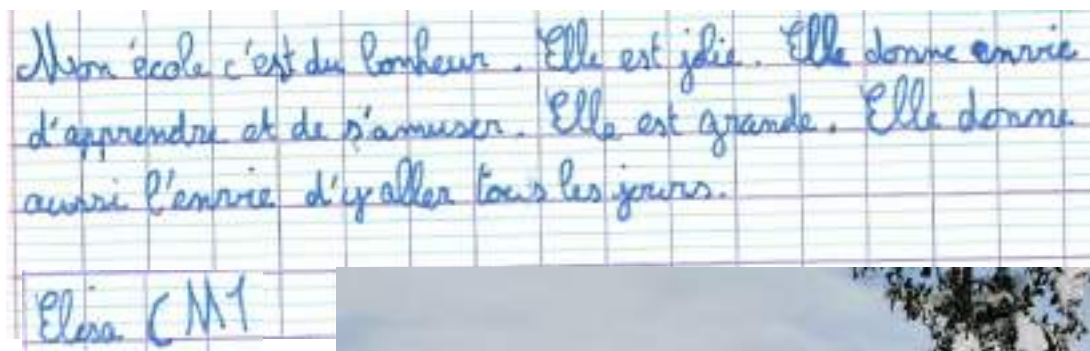 Mon école c'est du bonheur. Elle est jolie. Elle donne envie
d'apprendre et de s'amuser. Elle est grande. Elle donne
aussi l'envie d'y aller tous les jours.
Elisa CM1